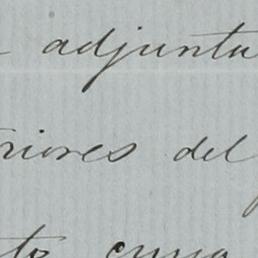 adjunta
riores del
to cuya